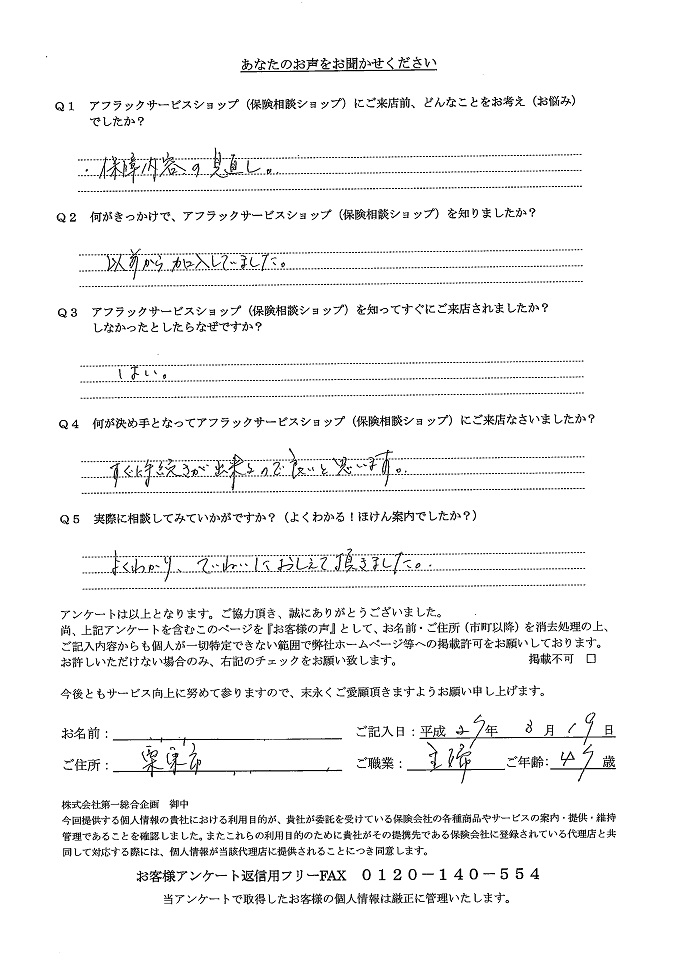 あなたのお声をお聞かせください
Q1 アフラックサービスショップ（保険相談ショップ）にご来店前、どんなことをお考え（お悩み）
でしたか？
・保障内容の見直し。
Q2 何がきっかけで、アフラックサービスショップ（保険相談ショップ）を知りましたか？
以前から加入していました。
Q3 アフラックサービスショップ（保険相談ショップ）を知ってすぐにご来店されましたか？
しなかったとしたらなぜですか？
はい。
Q4 何が決め手となってアフラックサービスショップ（保険相談ショップ）にご来店なさいましたか？
すぐに手続きが出来るので良いと思います。
Q5 実際に相談してみていかがですか？（よくわかる！ほけん案内でしたか？）
よくわかり、ていねいにおしえて頂きました。
アンケートは以上となります。ご協力頂き、誠にありがとうございました。
尚、上記アンケートを含むこのページを『お客様の声』として、お名前・ご住所（市町以降）を消去処理の上、
ご記入内容からも個人が一切特定できない範囲で弊社ホームページ等への掲載許可をお願いしております。
お許しいただけない場合のみ、右記のチェックをお願い致します。 掲載不可 □
今後ともサービス向上に努めて参りますので、末永くご愛顧頂きますようお願い申し上げます。
お名前： ご記入日：平成 年 月 19 日
ご住所： 栗東市 ご職業： 主婦 ご年齢： 歳
株式会社第一総合企画 御中
今回提供する個人情報の貴社における利用目的が、貴社が委託を受けている保険会社の各種商品やサービスの案内・提供・維持
管理であることを確認しました。またこれらの利用目的のために貴社がその提携先である保険会社に登録されている代理店と共
同して対応する際には、個人情報が当該代理店に提供されることにつき同意します。
お客様アンケート返信用フリーFAX 0120－140－554
当アンケートで取得したお客様の個人情報は厳正に管理いたします。